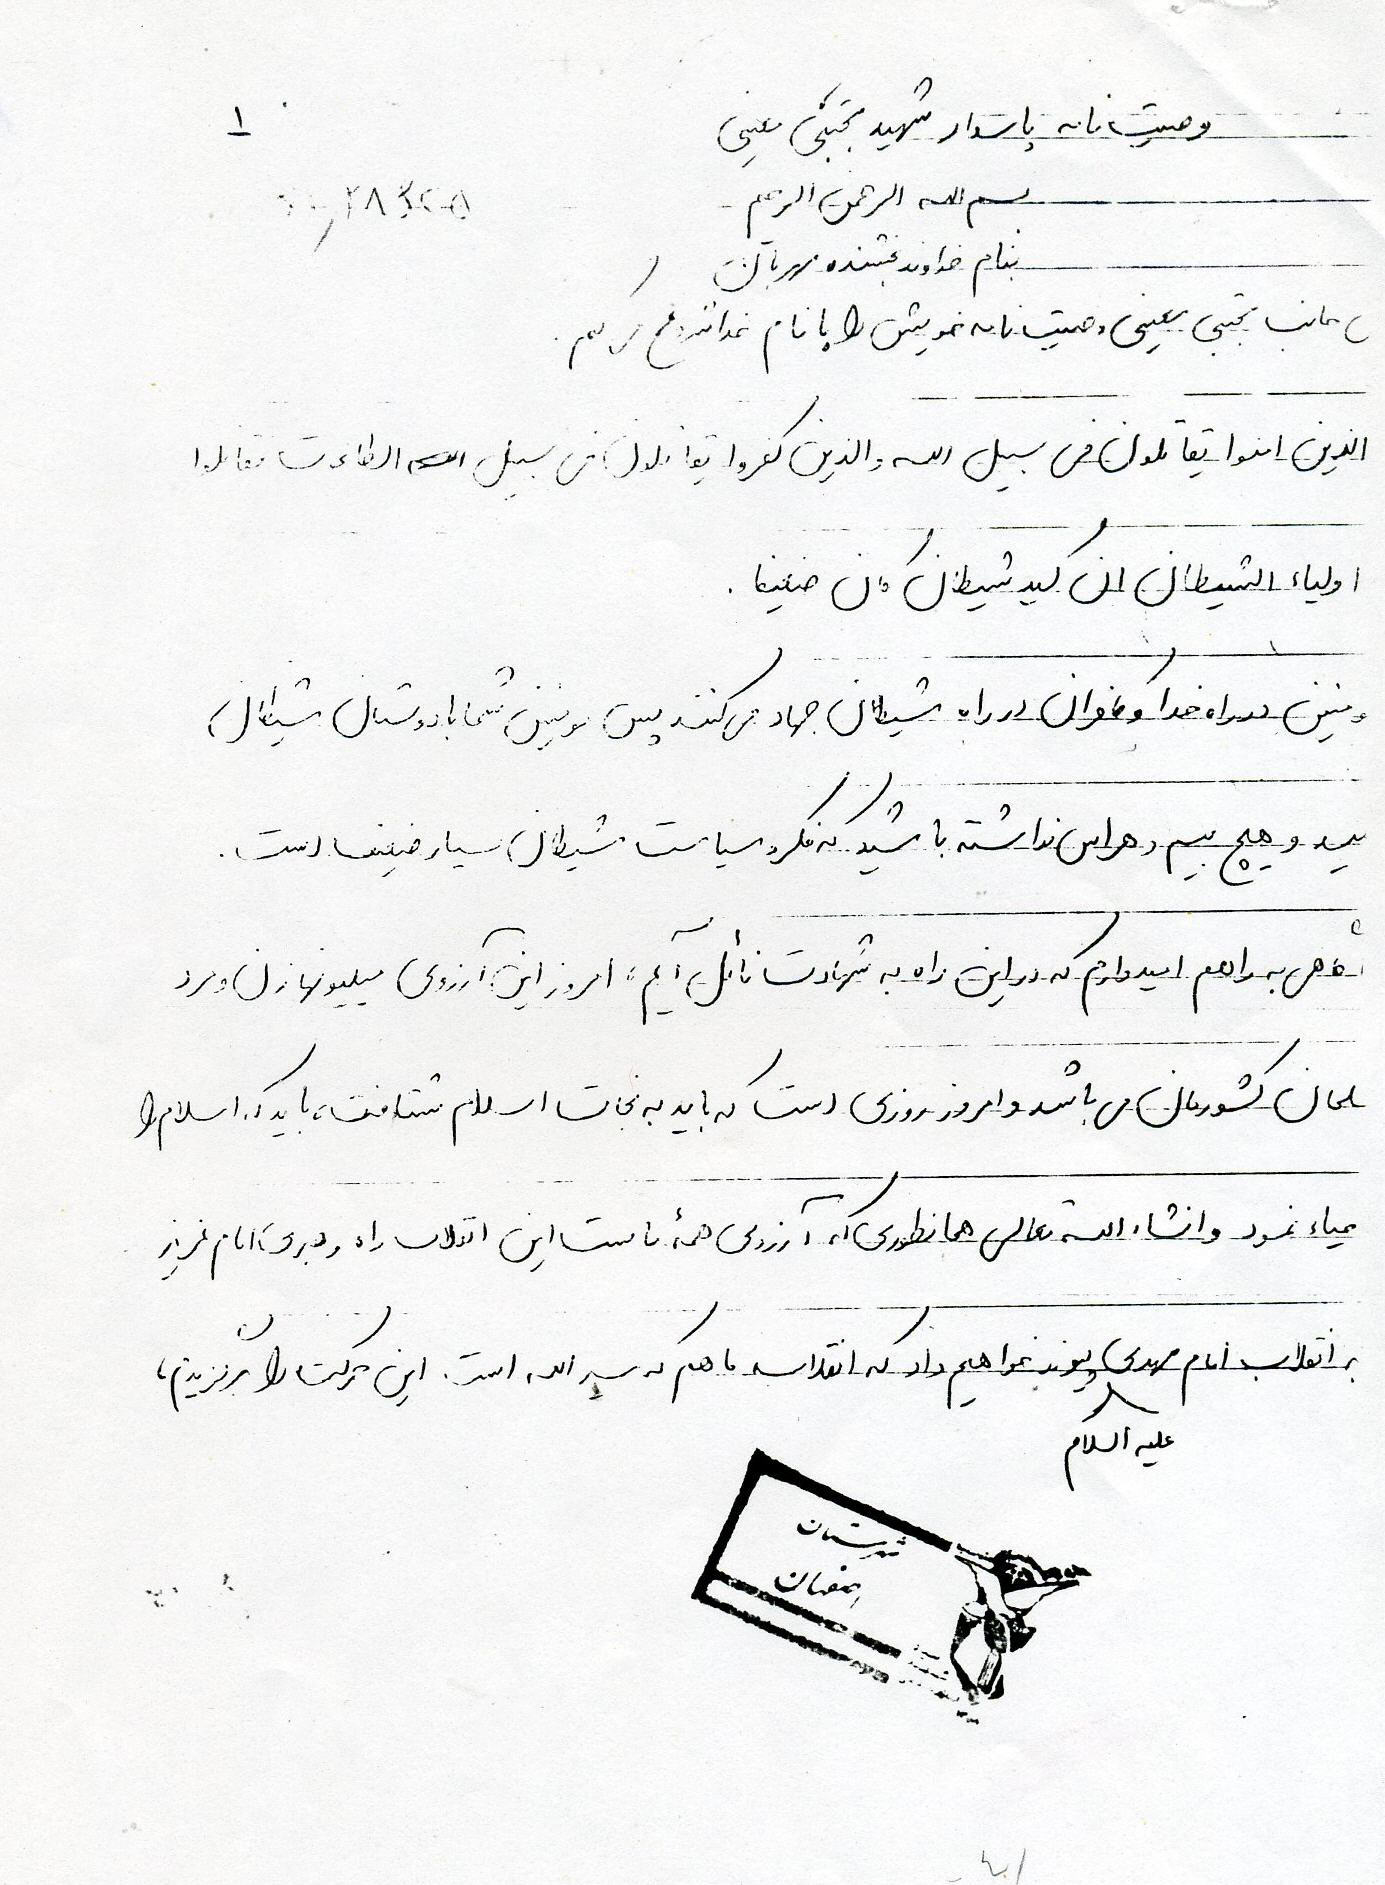 وصیت نامه پاسدار شهید مجتبی معینی
۱
بسم الله الرحمن الرحیم
بنام خداوند بخشنده مهربان
جانب مجتبی معینی وصیت نامه خویش را با نام خدا شروع می کنم.
الذین امنوا یقاتلون فی سبیل الله والذین کفروا یقاتلون فی سبیل الطاغوت فقاتلوا
اولیاء الشیطان ان کید شیطان کان ضعیفا.
ومنین در راه خدا و کافران در راه شیطان جهاد می کنند پس مومنین شما با دوستان شیطان
و هیچ بیم و هراس نداشته باشید که فکر و سیاست شیطان بسیار ضعیف است.
به راهم امیدوارم که در این راه به شهادت نائل آیم، امروز این آرزوی میلیونها زن و مرد
سلمان کشورمان می باشد و امروز روزی است که باید به نجات اسلام شتافت، باید که اسلام را
نمود و انشاء الله تعالی همانطوری که آرزوی همۀ ماست این انقلاب راه رهبری امام عزیز
به انقلاب امام مهدی پیوند خواهیم داد که انقلاب ما هم که سبیل الله است. این حرکت را برگزیدیم،
علیه السلام
شهرستان
اصفهان